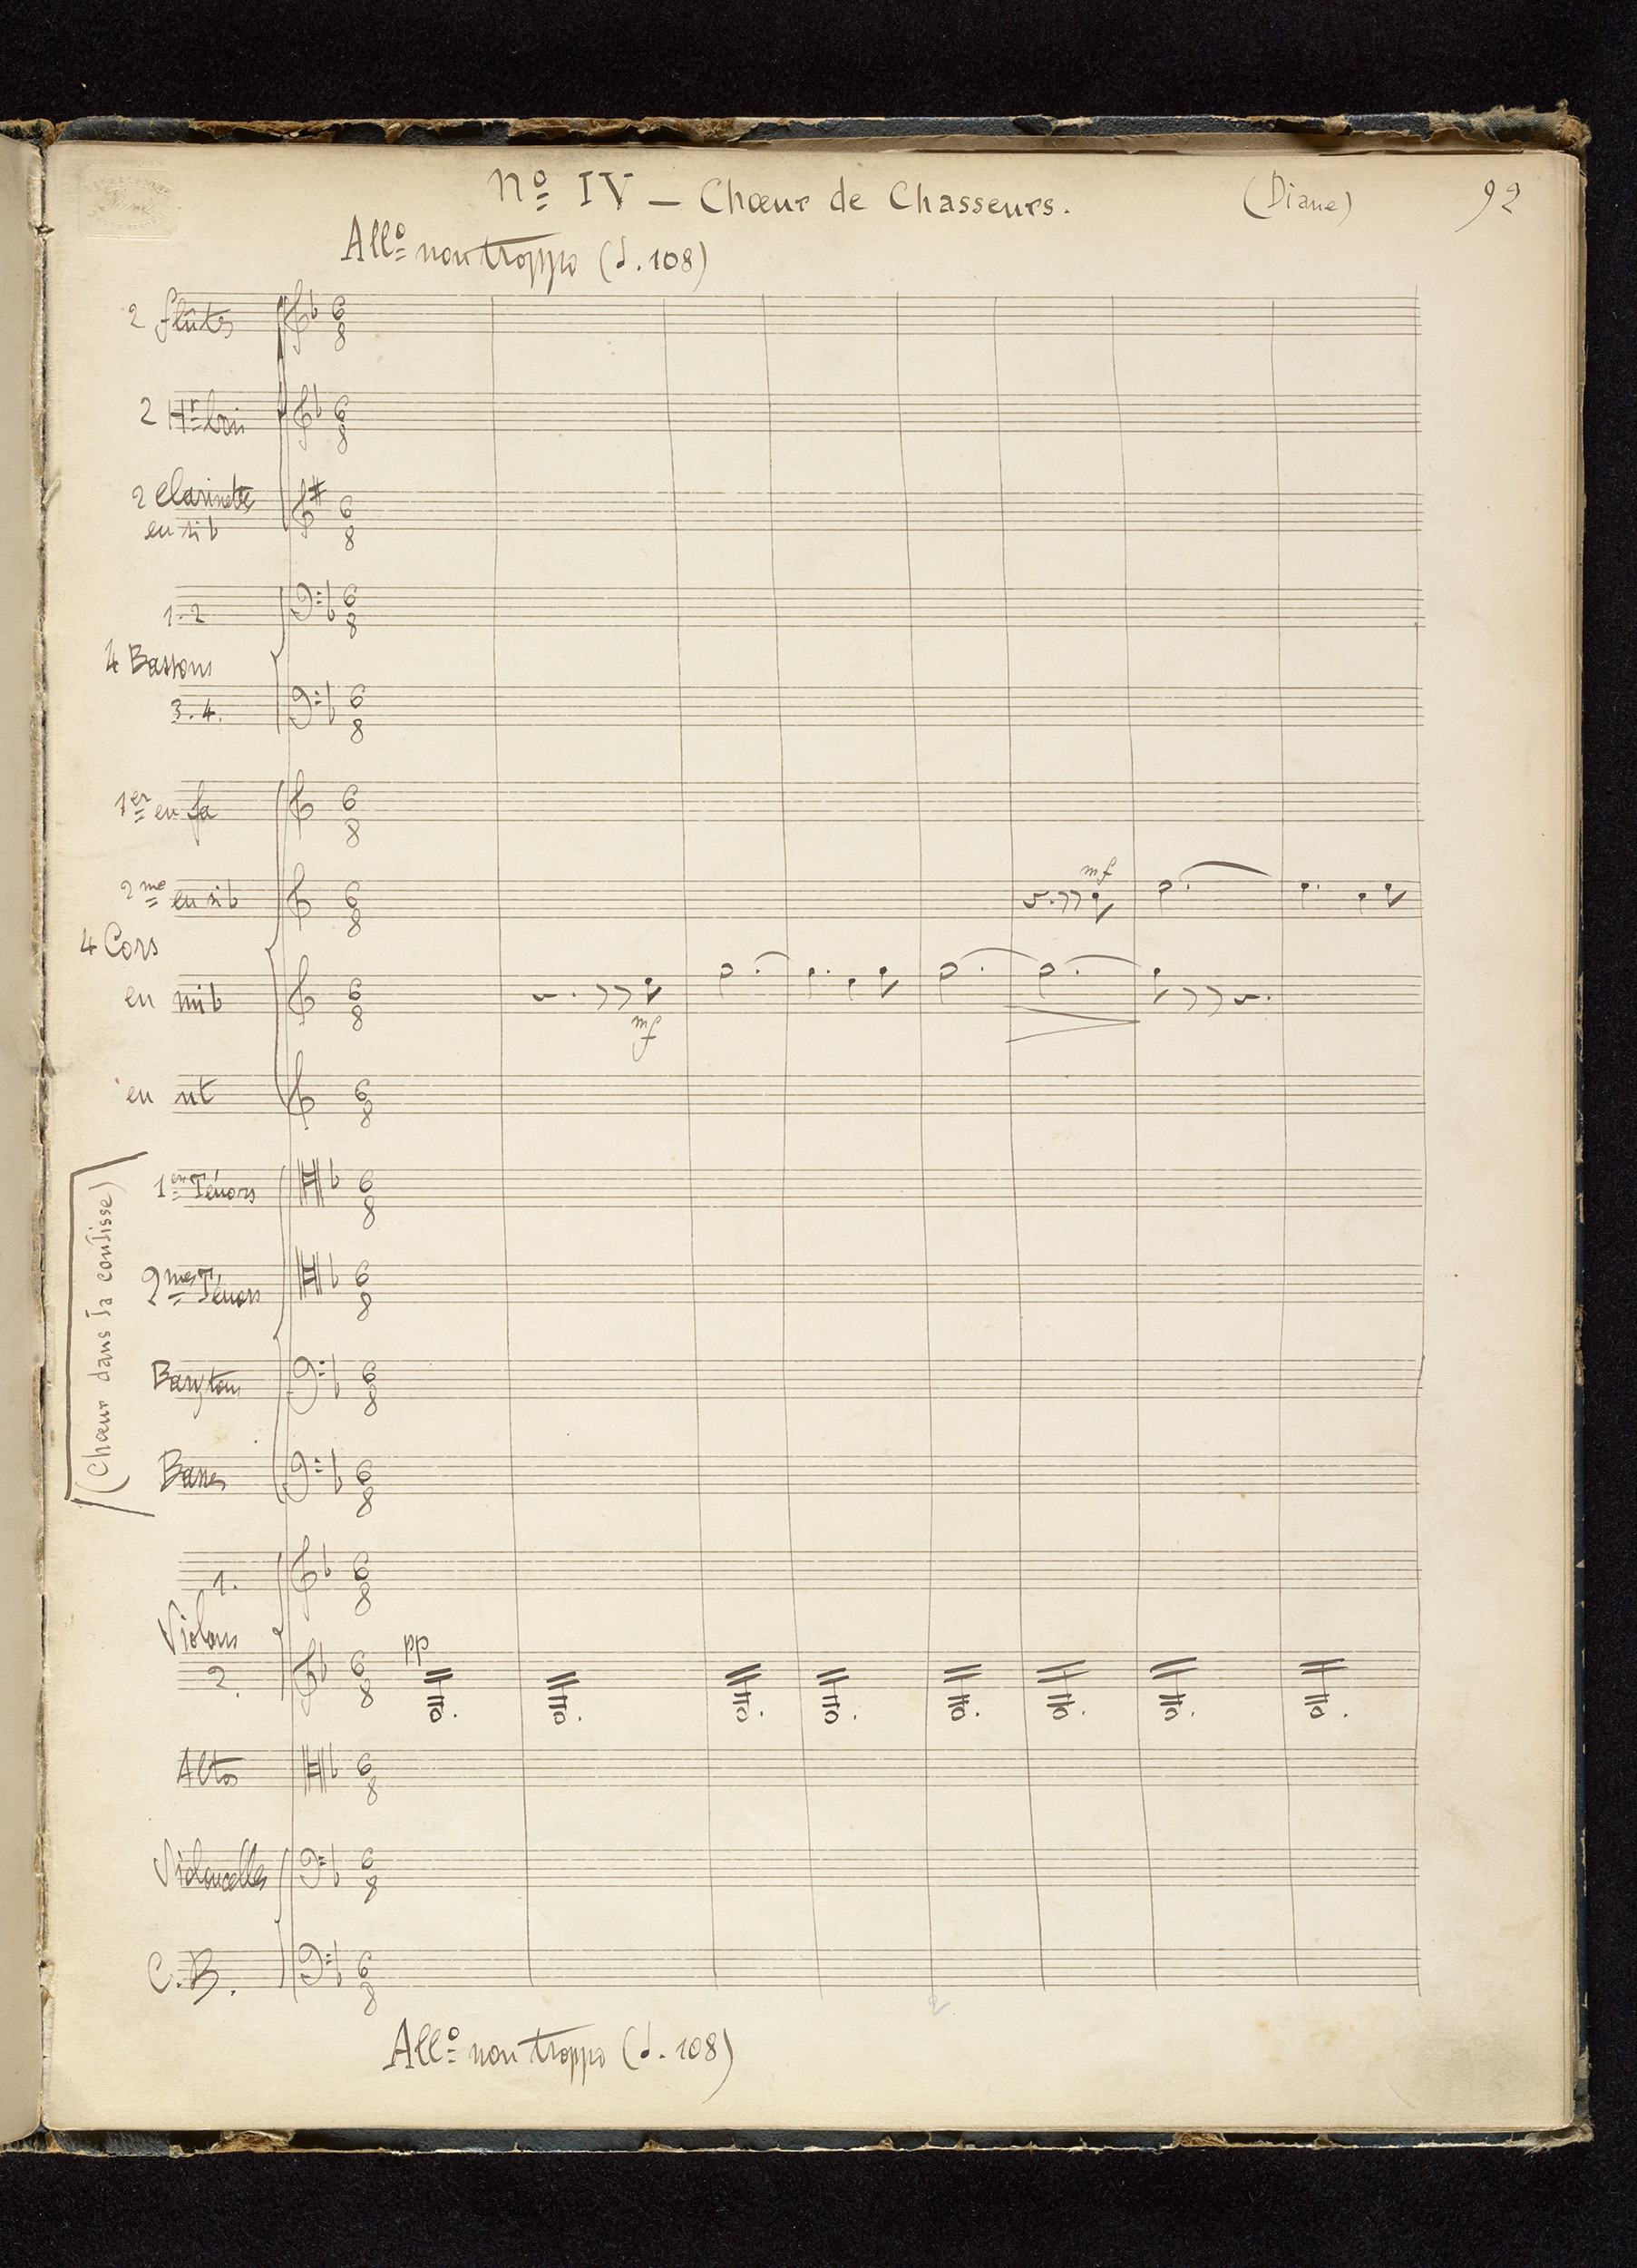 Nº IV — Chœur de Chasseurs. (Diane) 92
Allº non troppo (♩. 108)
2 flûtes
2 Htbois
2 Clarinettes
en si b
1. 2
4 Bassons
3. 4.
1er en fa
2me en si b
mf
4 Cors
en mi b
mf
en ut
(Chœur dans la coulisse)
1ers Ténors
2mes Ténors
Barytons
Basses
1.
Violons
pp
2.
Altos
Violoncelles
C. B.
Allº non troppo (♩. 108)